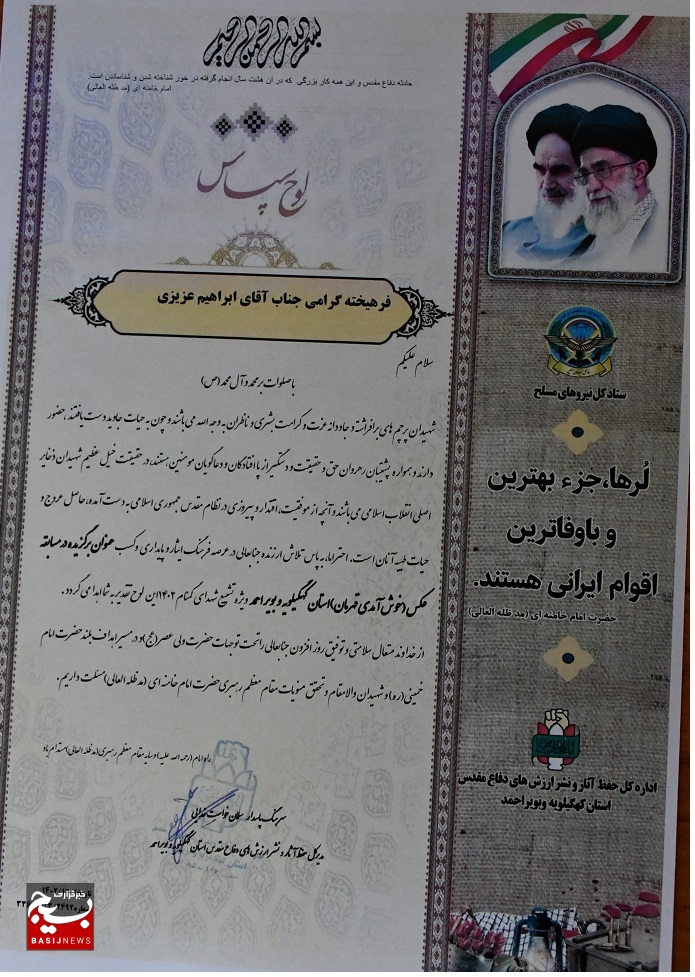 بسم الله الرحمن الرحیم
حادثه دفاع مقدس و این همه کار بزرگی که در آن هشت سال انجام گرفته در خور شناخته شدن و شناساندن است.
امام خامنه ای (مد ظله العالی)
لوح سپاس
فرهیخته گرامی جناب آقای ابراهیم عزیزی
سلام علیکم
با صلوات بر محمد و آل محمد (ص)
شهیدان پرچم های برافراشته و جاودانه عزت و کرامت بشری و ناظران به وجه الله می باشند و چون به حیات جاوید دست یافتند، حضور
دارند و همواره پشتیبان رهروان حق و حقیقت و دستگیر از پا افتادگان و دعاگویان مومنین هستند، در حقیقت خیل عظیم شهیدان ذخایر
اصلی انقلاب اسلامی می باشند و آنچه از موفقیت، اقتدار و پیروزی در نظام مقدس جمهوری اسلامی به دست آمده، حاصل عروج و
حیات طیبه آنان است. احتراما، به پاس تلاش ارزنده جنابعالی در عرصه فرهنگ ایثار و پایداری و کسب عنوان برگزیده در مسابقه
عکس (خوش آمدی قهرمان) استان کهگیلویه و بویراحمد ویژه تشییع شهدای گمنام ۱۴۰۲ این لوح تقدیر به شما اهدا می گردد.
از خداوند متعال سلامتی و توفیق روز افزون جنابعالی را تحت توجهات حضرت ولی عصر (عج) و در مسیر اهداف بلند حضرت امام
خمینی (ره) و شهیدان والامقام و تحقق منویات مقام معظم رهبری حضرت امام خامنه ای (مد ظله العالی) مسئلت داریم.
راه امام (رحمه الله علیه) و سایه مقام معظم رهبری (مد ظله العالی) مستدام باد
سرهنگ پاسدار
مدیرکل حفظ آثار و نشر ارزش های دفاع مقدس استان کهگیلویه و بویراحمد
ستاد کل نیروهای مسلح
لُرها، جزء بهترین
و باوفاترین
اقوام ایرانی هستند.
حضرت امام خامنه ای (مد ظله العالی)
اداره کل حفظ آثار و نشر ارزش های دفاع مقدس
استان کهگیلویه وبویراحمد
خبرگزاری
بسیج
BASIJNEWS